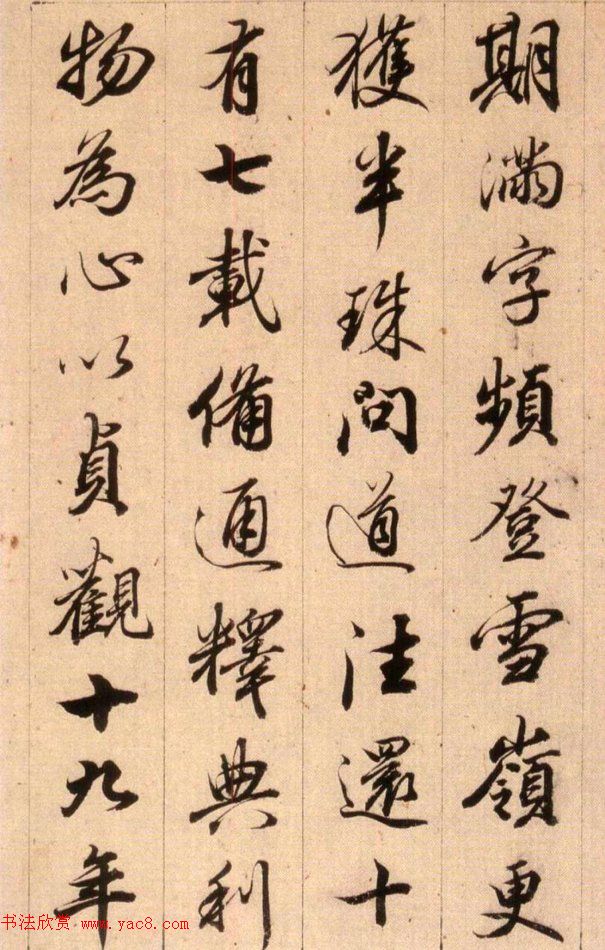 期滿字頻登雪嶺更
獲半珠問道往還十
有七載備通釋典利
物為心以貞觀十九年
书法欣赏 www.yac8.com